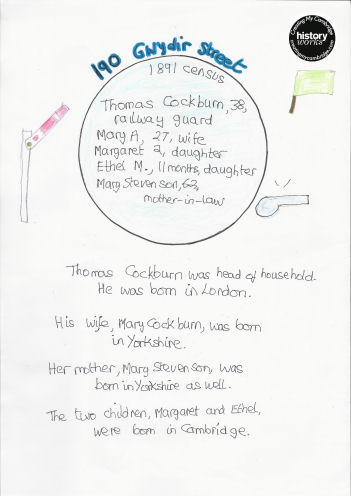 Creating My Cambridge
history
WORKS
creatingmycambridge.com
190 Gwydir Street
1891 census
Thomas Cockburn, 38,
railway guard
Mary A, 27, wife
Margaret 2, daughter
Ethel M., 11 months, daughter
Mary Stevenson, 62,
mother-in-law
Thomas Cockburn was head of household.
He was born in London.
His wife, Mary Cockburn, was born
in Yorkshire.
Her mother, Mary Stevenson, was
born in Yorkshire as well.
The two children, Margaret and Ethel,
were born in Cambridge.